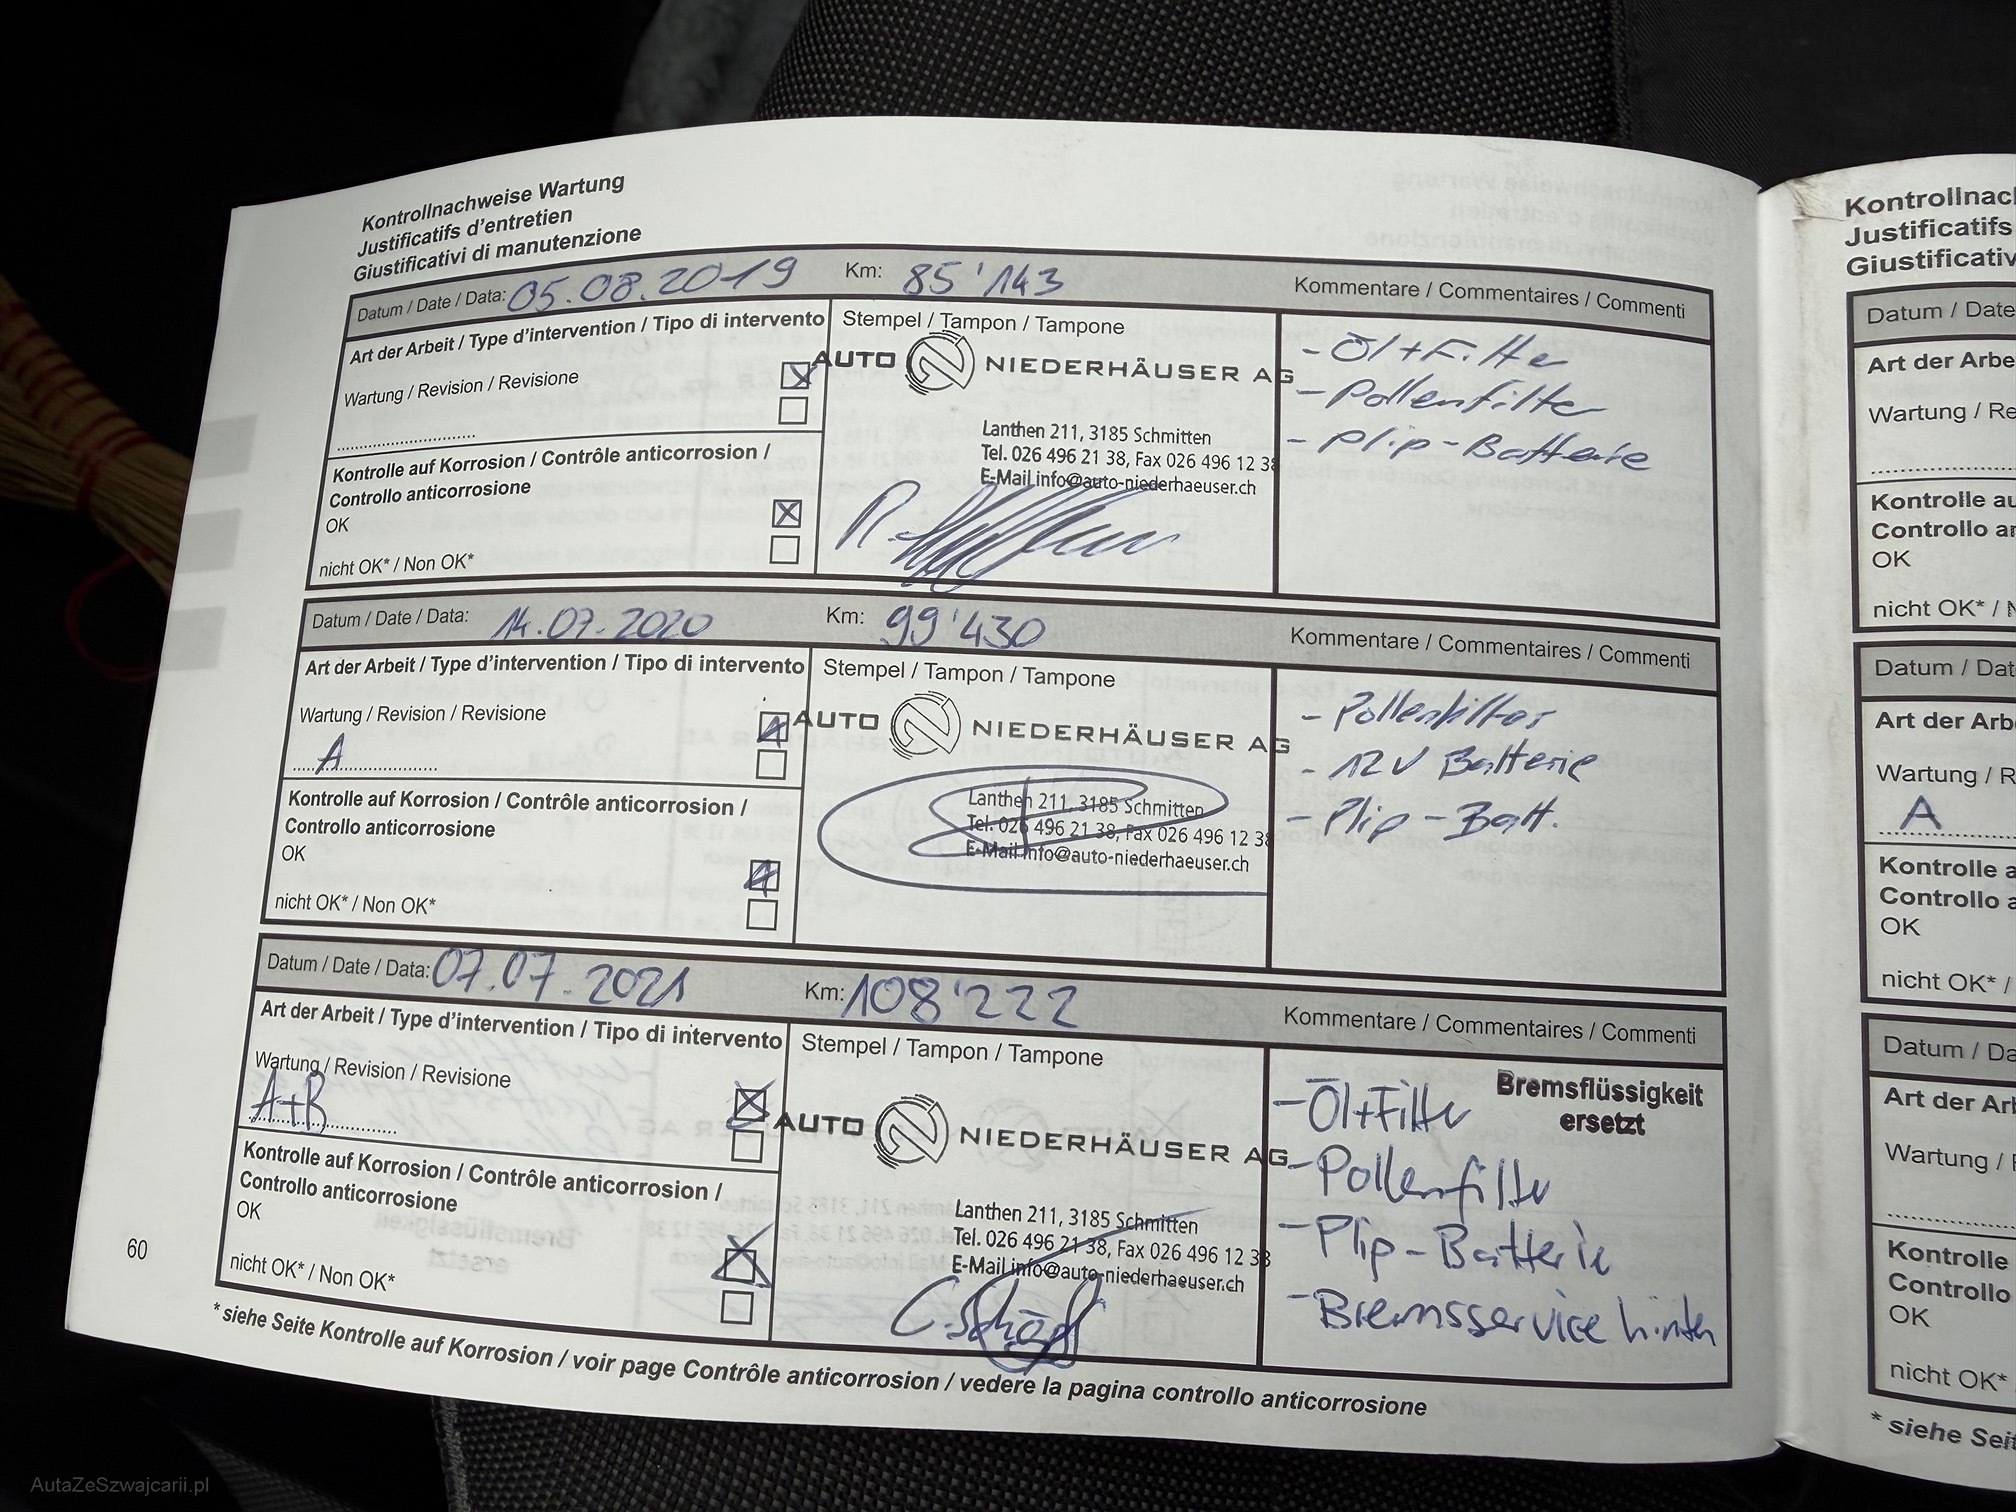 Kontrollnachweise Wartung
Justificatifs d'entretien
Giustificativi di manutenzione
Datum / Date / Data: 05.08.2019 Km: 85'143 Kommentare / Commentaires / Commenti
Art der Arbeit / Type d'intervention / Tipo di intervento
Wartung / Revision / Revisione
Kontrolle auf Korrosion / Contrôle anticorrosion /
Controllo anticorrosione
OK
nicht OK* / Non OK*
Stempel / Tampon / Tampone
AUTO NIEDERHÄUSER AG
Lanthen 211, 3185 Schmitten
Tel. 026 496 21 38, Fax 026 496 12 38
E-Mail info@auto-niederhaeuser.ch
- Öl+Filter
- Pollenfilter
- Plip-Batterie
Datum / Date / Data: 14.07.2020 Km: 99'430 Kommentare / Commentaires / Commenti
Art der Arbeit / Type d'intervention / Tipo di intervento
Wartung / Revision / Revisione
A
Kontrolle auf Korrosion / Contrôle anticorrosion /
Controllo anticorrosione
OK
nicht OK* / Non OK*
Stempel / Tampon / Tampone
AUTO NIEDERHÄUSER AG
Lanthen 211, 3185 Schmitten
Tel. 026 496 21 38, Fax 026 496 12 38
E-Mail info@auto-niederhaeuser.ch
- Pollenfilter
- 12V Batterie
- Plip-Batt.
Datum / Date / Data: 07.07.2021 Km: 108'222 Kommentare / Commentaires / Commenti
Art der Arbeit / Type d'intervention / Tipo di intervento
Wartung / Revision / Revisione
A+B
Kontrolle auf Korrosion / Contrôle anticorrosion /
Controllo anticorrosione
OK
nicht OK* / Non OK*
Stempel / Tampon / Tampone
AUTO NIEDERHÄUSER AG
Lanthen 211, 3185 Schmitten
Tel. 026 496 21 38, Fax 026 496 12 38
E-Mail info@auto-niederhaeuser.ch
Bremsflüssigkeit
ersetzt
- Öl+Filter
- Pollenfilter
- Plip-Batterie
- Bremsservice hinten
60
* siehe Seite Kontrolle auf Korrosion / voir page Contrôle anticorrosion / vedere la pagina controllo anticorrosione
Kontrollnac
Justificatifs
Giustificativ
Datum / Date
Art der Arbe
Wartung / Re
Kontrolle au
Controllo an
OK
nicht OK* / N
Datum / Dat
Art der Arb
Wartung / R
A
Kontrolle a
Controllo a
OK
nicht OK* /
Datum / Da
Art der Arl
Wartung /
Kontrolle
Controllo
OK
nicht OK*
* siehe Sei
AutaZeSzwajcarii.pl